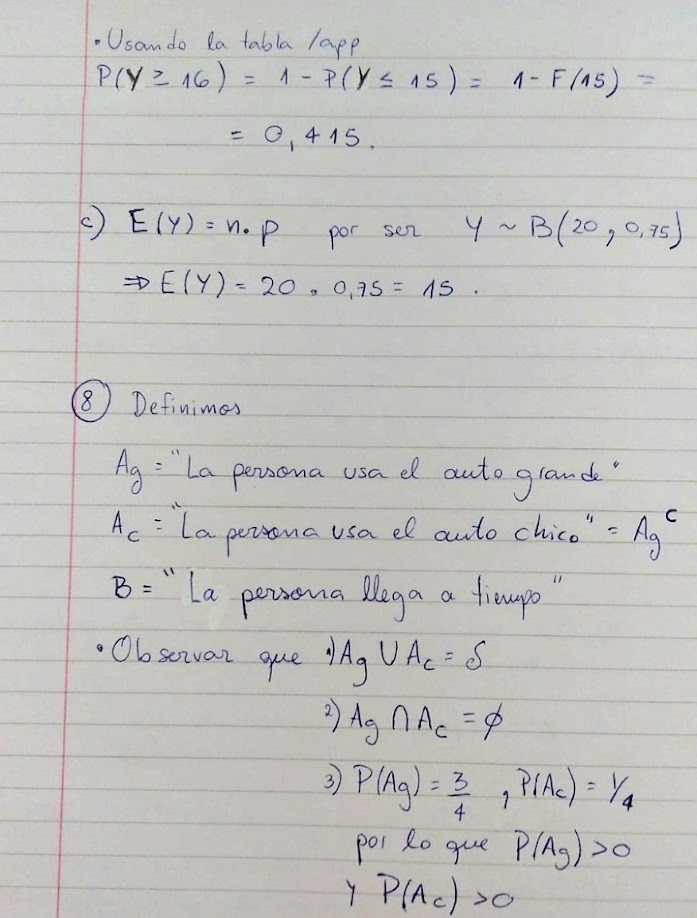 • Usando la tabla /app
P(Y ≥ 16) = 1 - P(Y ≤ 15) = 1 - F(15) =
= 0,415.
c) E(Y) = n.p por ser Y ~ B(20, 0,75)
⇒ E(Y) = 20 . 0,75 = 15 .
8 Definimos
Ag = "La persona usa el auto grande"
Ac = "La persona usa el auto chico" = Ag^c
B = "La persona llega a tiempo"
• Observar que 1) Ag ∪ Ac = S
2) Ag ∩ Ac = ϕ
3) P(Ag) = 3/4 , P(Ac) = 1/4
por lo que P(Ag) >0
y P(Ac) >0